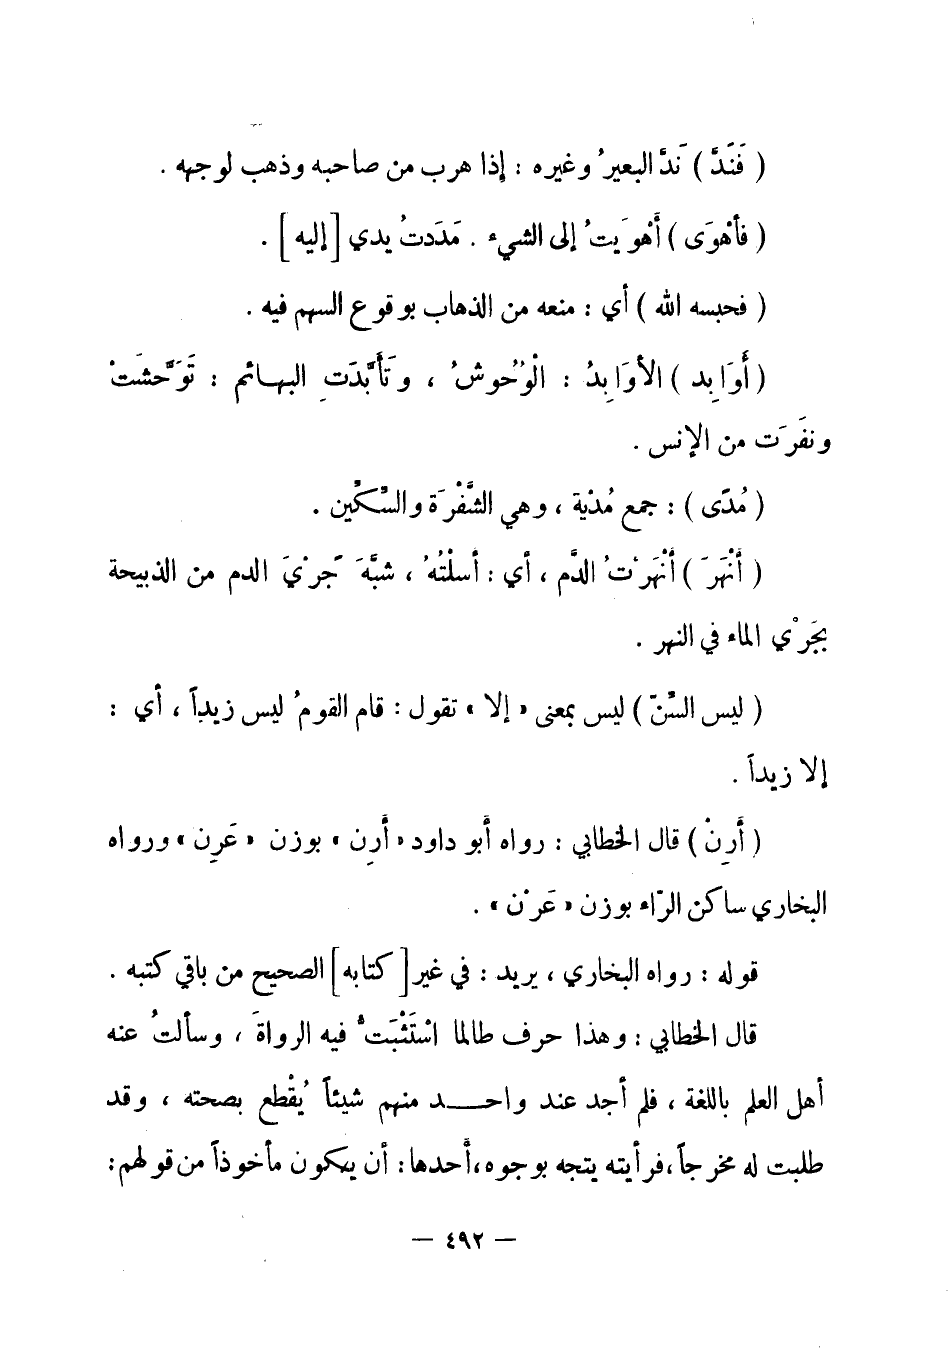 ( فَنَدَّ ) نَدَّ البعيرُ وغيره : إذا هرب من صاحبه وذهب لوجهه .
( فأهْوَى ) أهْوَيتُ إلى الشيء . مَدَدتُ يدي [إليه] .
( فحبسه الله ) أي : منعه من الذهاب بوقوع السهم فيه .
( أَوَابِد ) الأوَابِدُ : الْوُحُوشُ ، وتَأَبَّدَتِ البهائم : تَوَحَّشَتْ
ونفَرَت من الإنس .
( مُدًى ) : جمع مُدْيَة ، وهي الشَّفْرَة والسِّكِّين .
( أَنْهَرَ ) أنْهَرْتُ الدَّم ، أي : أسلْتُهُ ، شبَّهَ جَرْيَ الدم من الذبيحة
بجَرْي الماء في النهر .
( ليس السِّنّ ) ليس بمعنى « إلا » تقول : قام القومُ ليس زيداً ، أي :
إلا زيداً .
( أَرِنْ ) قال الخطابي : رواه أبو داود « أَرِن » بوزن « عَرِن » ورواه
البخاري ساكن الرّاء بوزن « عَرْن » .
قوله : رواه البخاري ، يريد : في غير [كتابه] الصحيح من باقي كتبه .
قال الخطابي : وهذا حرف طالما اسْتَثْبَتُّ فيه الرواةَ ، وسألتُ عنه
أهل العلم باللغة ، فلم أجد عند واحــد منهم شيئاً يُقْطع بصحته ، وقد
طلبت له مخرجاً ، فرأيته يتجه بوجوه ، أحدها : أن يكون مأخوذاً من قولهم :
— ٤٩٢ —